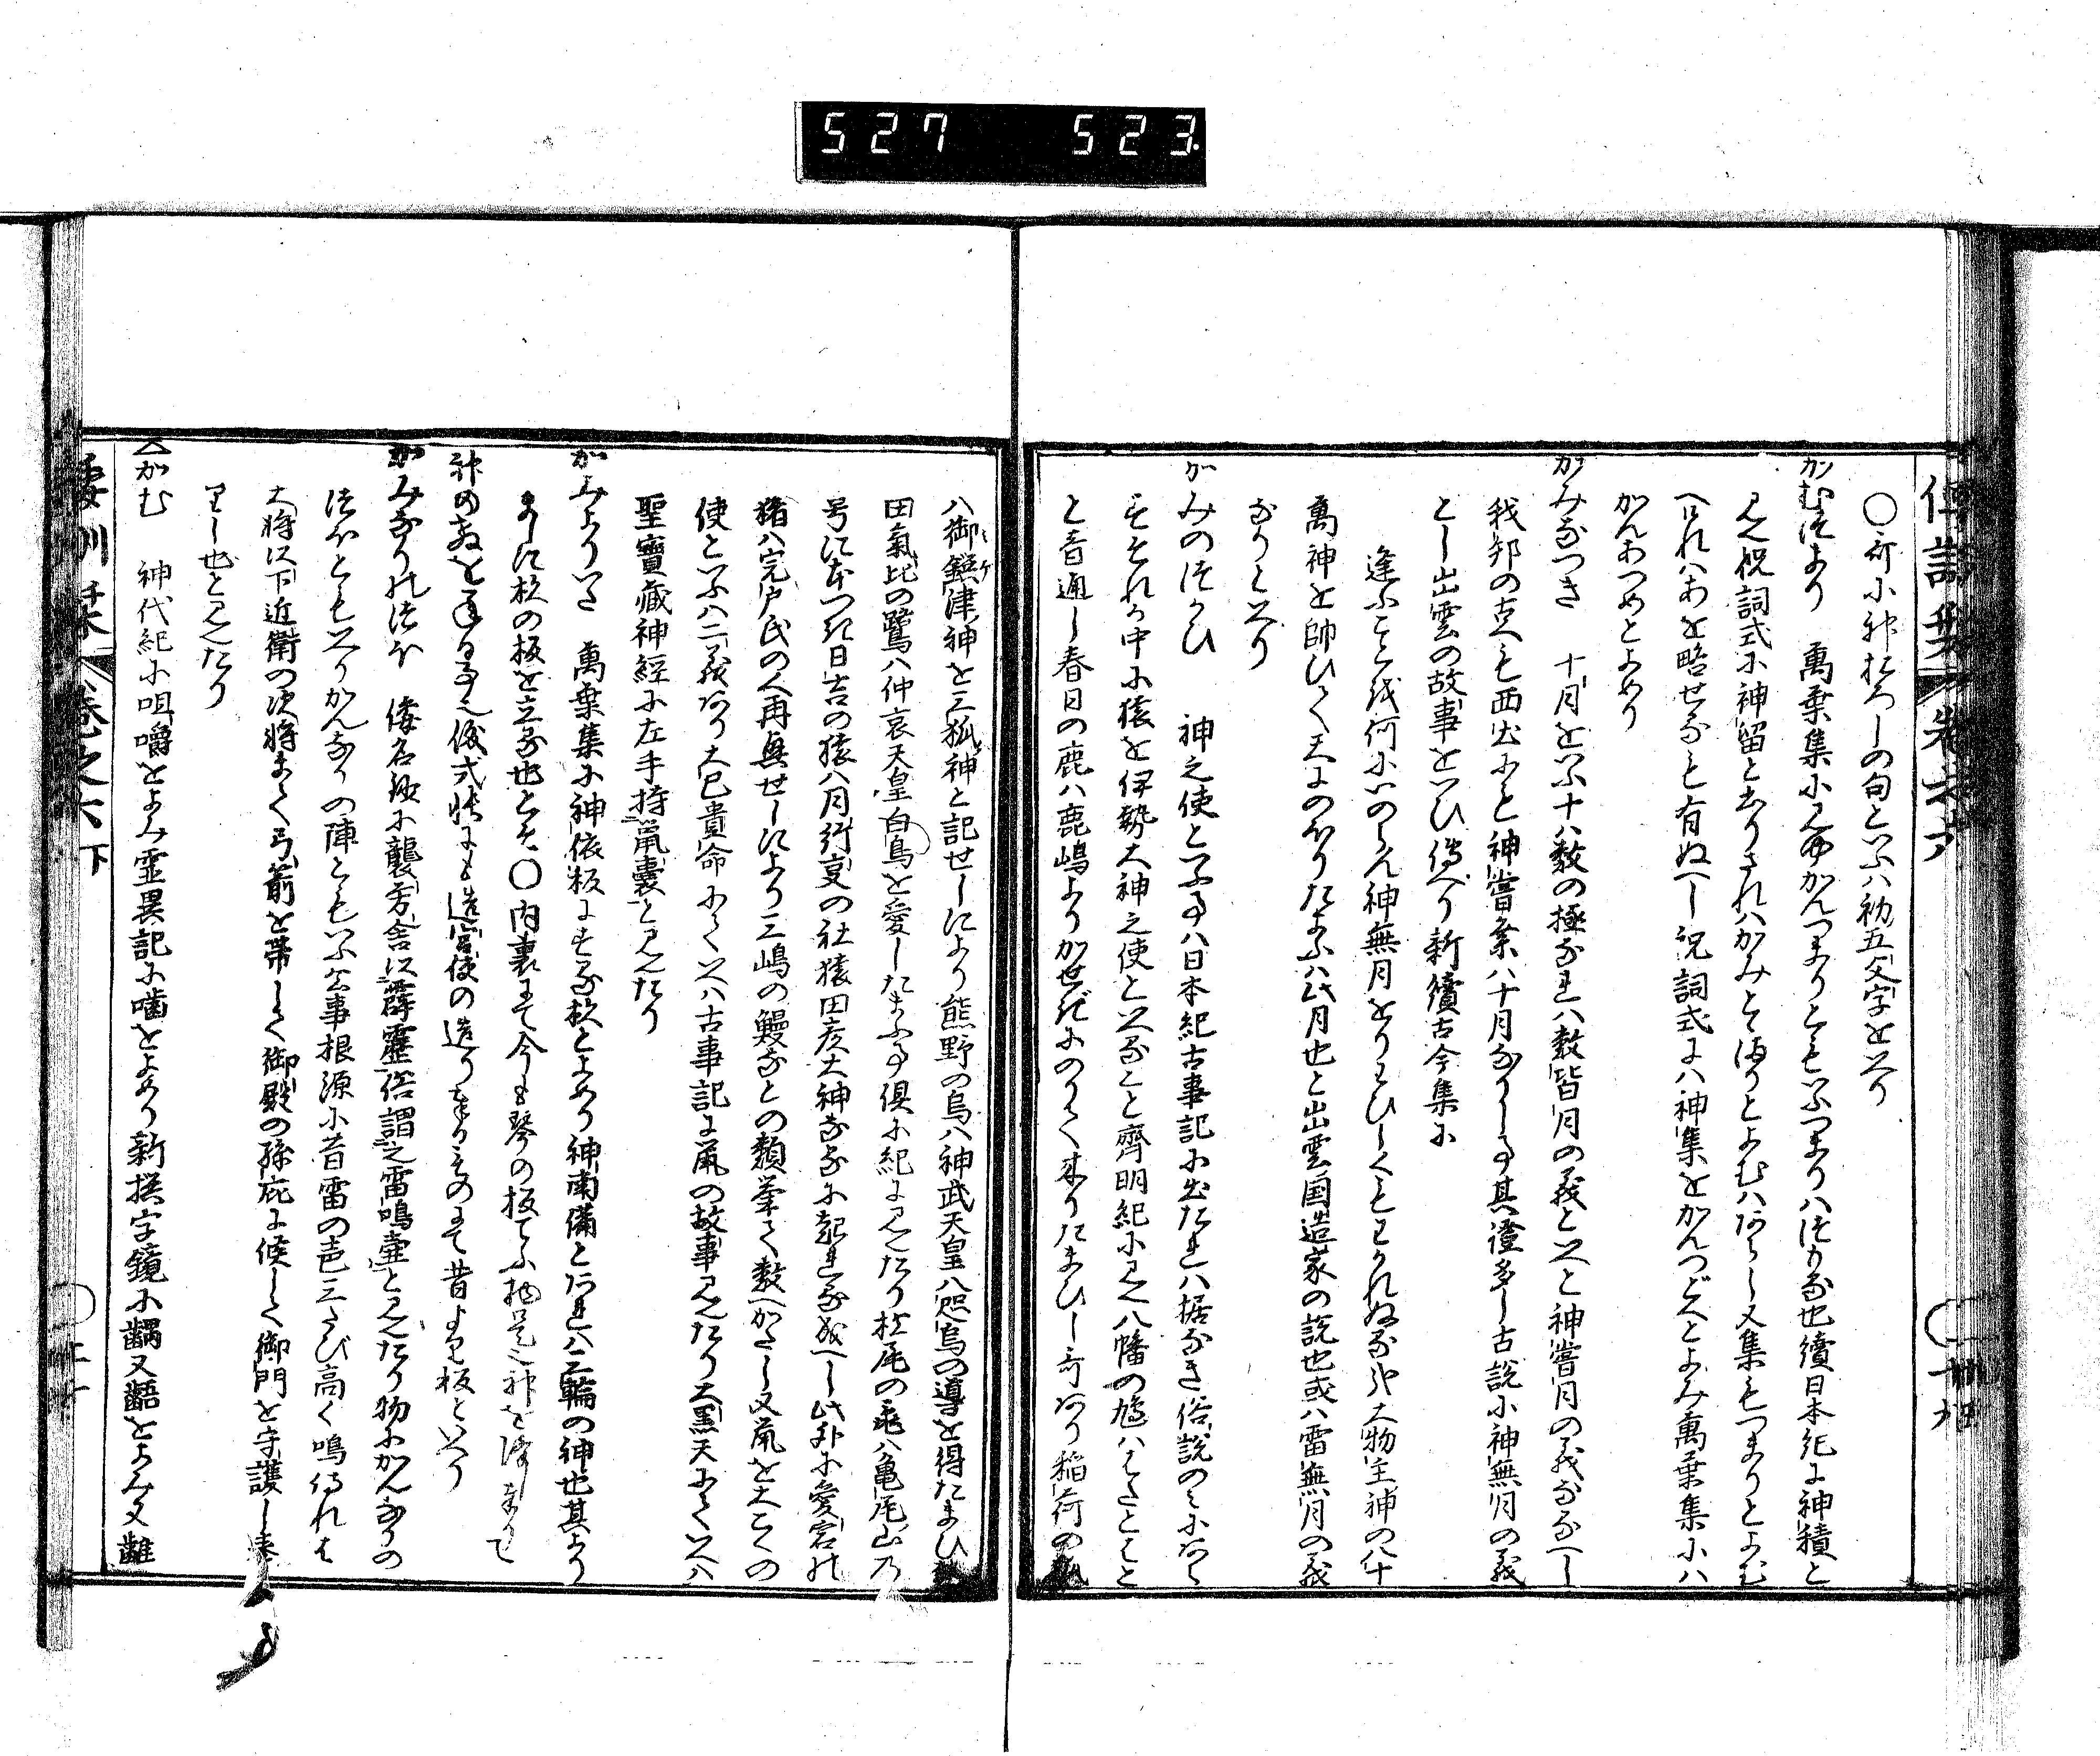 527 523.
○哥に神おろしの句といふハ初五文字をいへり
かむづまり 萬葉集に見ゆかんつまりともいふつまりハ つもる也續日本紀に神積と
見え祝詞式に神留とありされハかみとゞまりとよむハあらし又集もつまりとよむ
へけれハあを略せるも有ぬへし祝詞式にハ神集をかんつどへとよみ萬葉集にハ
かんあつめとよめり
かみなつき 十月をいふ十ハ数の極なれハ数皆月の義といへと神嘗月の義なるへし
我邦の古へも西土にも神嘗祭ハ十月なりし事其證多し古説に神無月の義
とし出雲の故事をいひ傳へり新續古今集に
逢ふことを何にいのらん神無月をりわひしくもわかれぬるや大物主神の八十
萬神を帥ひて天にのぼりたまふハ此月也と出雲国造家の説也或ハ雷無月の義
なりといへり
かみのつかひ 神之使といふ事ハ日本紀古事記に出たれハ据なき俗説のみにあらす
それか中に猿を伊勢大神之使といへること齊明紀に見え八幡の鳩ハはたとはと
と音通し春日の鹿ハ鹿嶋よりかせぎにのりて来りたまひし哥あり稲荷の狐
ハ御饌津神を三狐神と記せしにより熊野の烏ハ神武天皇八咫烏の導を得たまひ
田氣比の鷺ハ仲哀天皇白鳥を愛したまふ事倶に紀に見えたり松尾の亀ハ亀尾山乃
号にもとつき日吉の猿ハ月行事の社猿田彦大神なるに起れる成へし此外に愛宕の
猪ハ完戸氏の人再興せしにより三嶋の鰻なとの類挙て数へかたし又鼠を大こくの
使といふハ二義あり大己貴命にていへハ古事記に鼠の故事見えたり大黒天にていへハ
聖寶藏神經に左手持鼠嚢と見えたり
かみよりいた 萬葉集に神依板にする杉とよめり神南備とあれハ三輪の神也其より
ましに杉の板を立る也とそ○内裏にて今も琴の板てふ物是也神を降し奉りて
神の教を乗る事也儀式帳にも造宮使の造り奉りものにて昔より板といへり
かみなりのつぼ 倭名鈔に襲芳舎に霹靂俗謂之雷鳴壷と見えたり物にかんなりの
つぼともいへりかんなりの陣ともいふ公事根源に昔雷の声三たび高く鳴侍れは
大将以下近衛の次将まで弓箭を帯して御殿の孫庇に候して御門を守護し奉
りし也と見えたり
△かむ 神代紀に咀嚼をよみ霊異記に噛をよめり新撰字鏡に齵又齬をよみ又齜
倭訓栞 巻之六 下